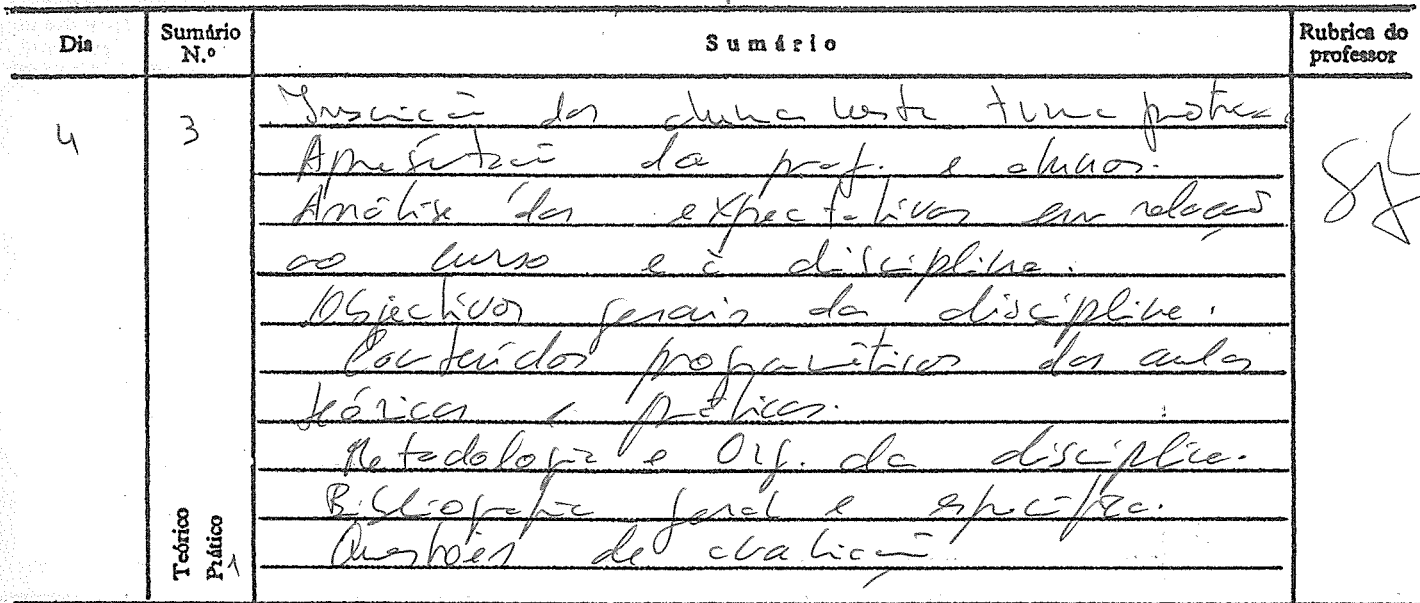 Dia Sumário N.º Sumário Rubrica do professor
4 3 Inscrição dos alunos nesta turma prática.
Apresentação da prof. e alunos.
Análise das expectativas em relação
ao curso e à disciplina.
Objectivos gerais da disciplina.
Conteúdos programáticos das aulas
teóricas e práticas.
Metodologia e Org. da disciplina.
Bibliografia geral e específica.
Questões de avaliação
Teórico
Prático 1